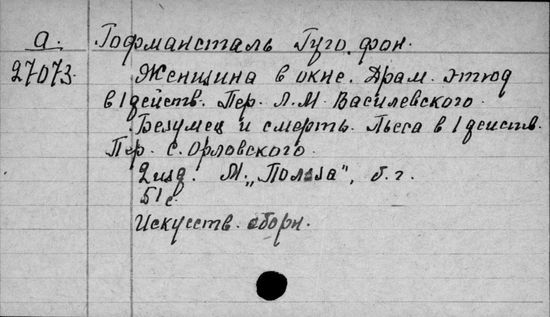 а. Гофмансталь Гуго фон.
27073. Женщина в окне. Драм. этюд
в 1 действ. Пер. Л.М. Василевского.
Безумец и смерть. Пьеса в 1 действ.
Пер. С. Орловского.
2 изд. М. „Польза", б. г.
51 с.
Искусств. сборн.